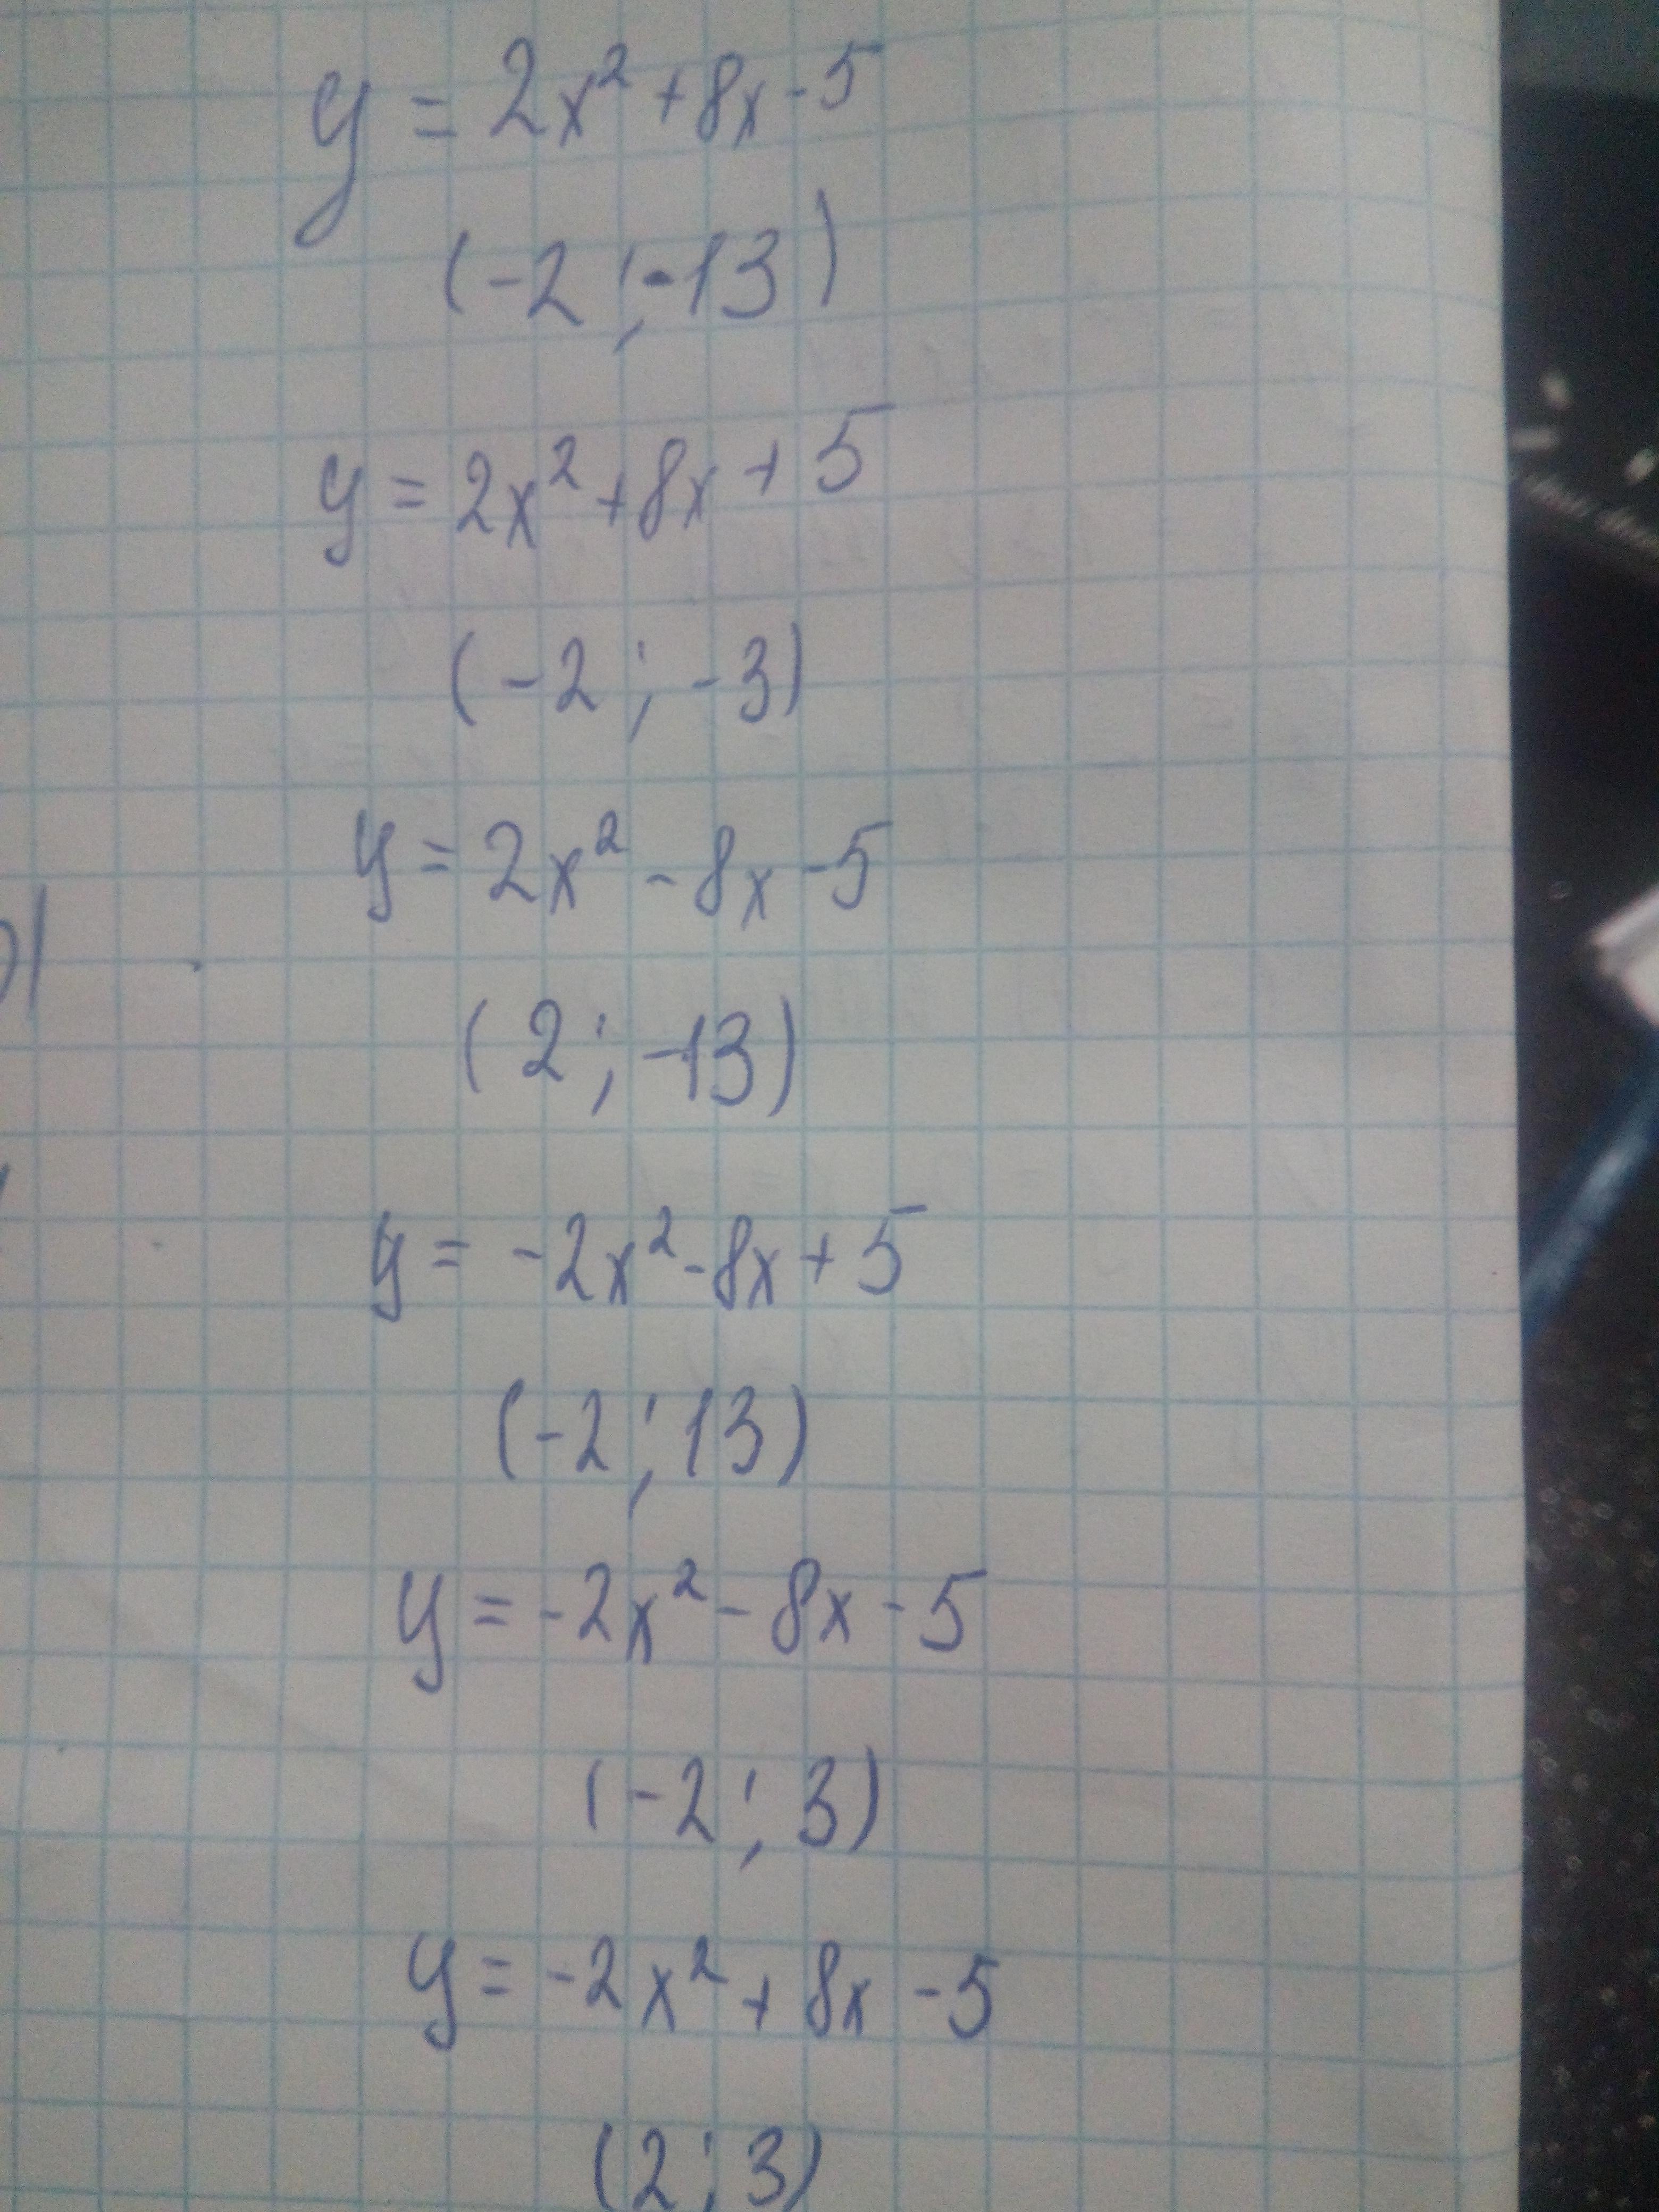 y = 2x² + 8x - 5
(-2 ; -13)
y = 2x² + 8x + 5
(-2 ; -3)
y = 2x² - 8x - 5
(2 ; -13)
y = -2x² - 8x + 5
(-2 ; 13)
y = -2x² - 8x - 5
(-2 ; 3)
y = -2x² + 8x - 5
(2 ; 3)